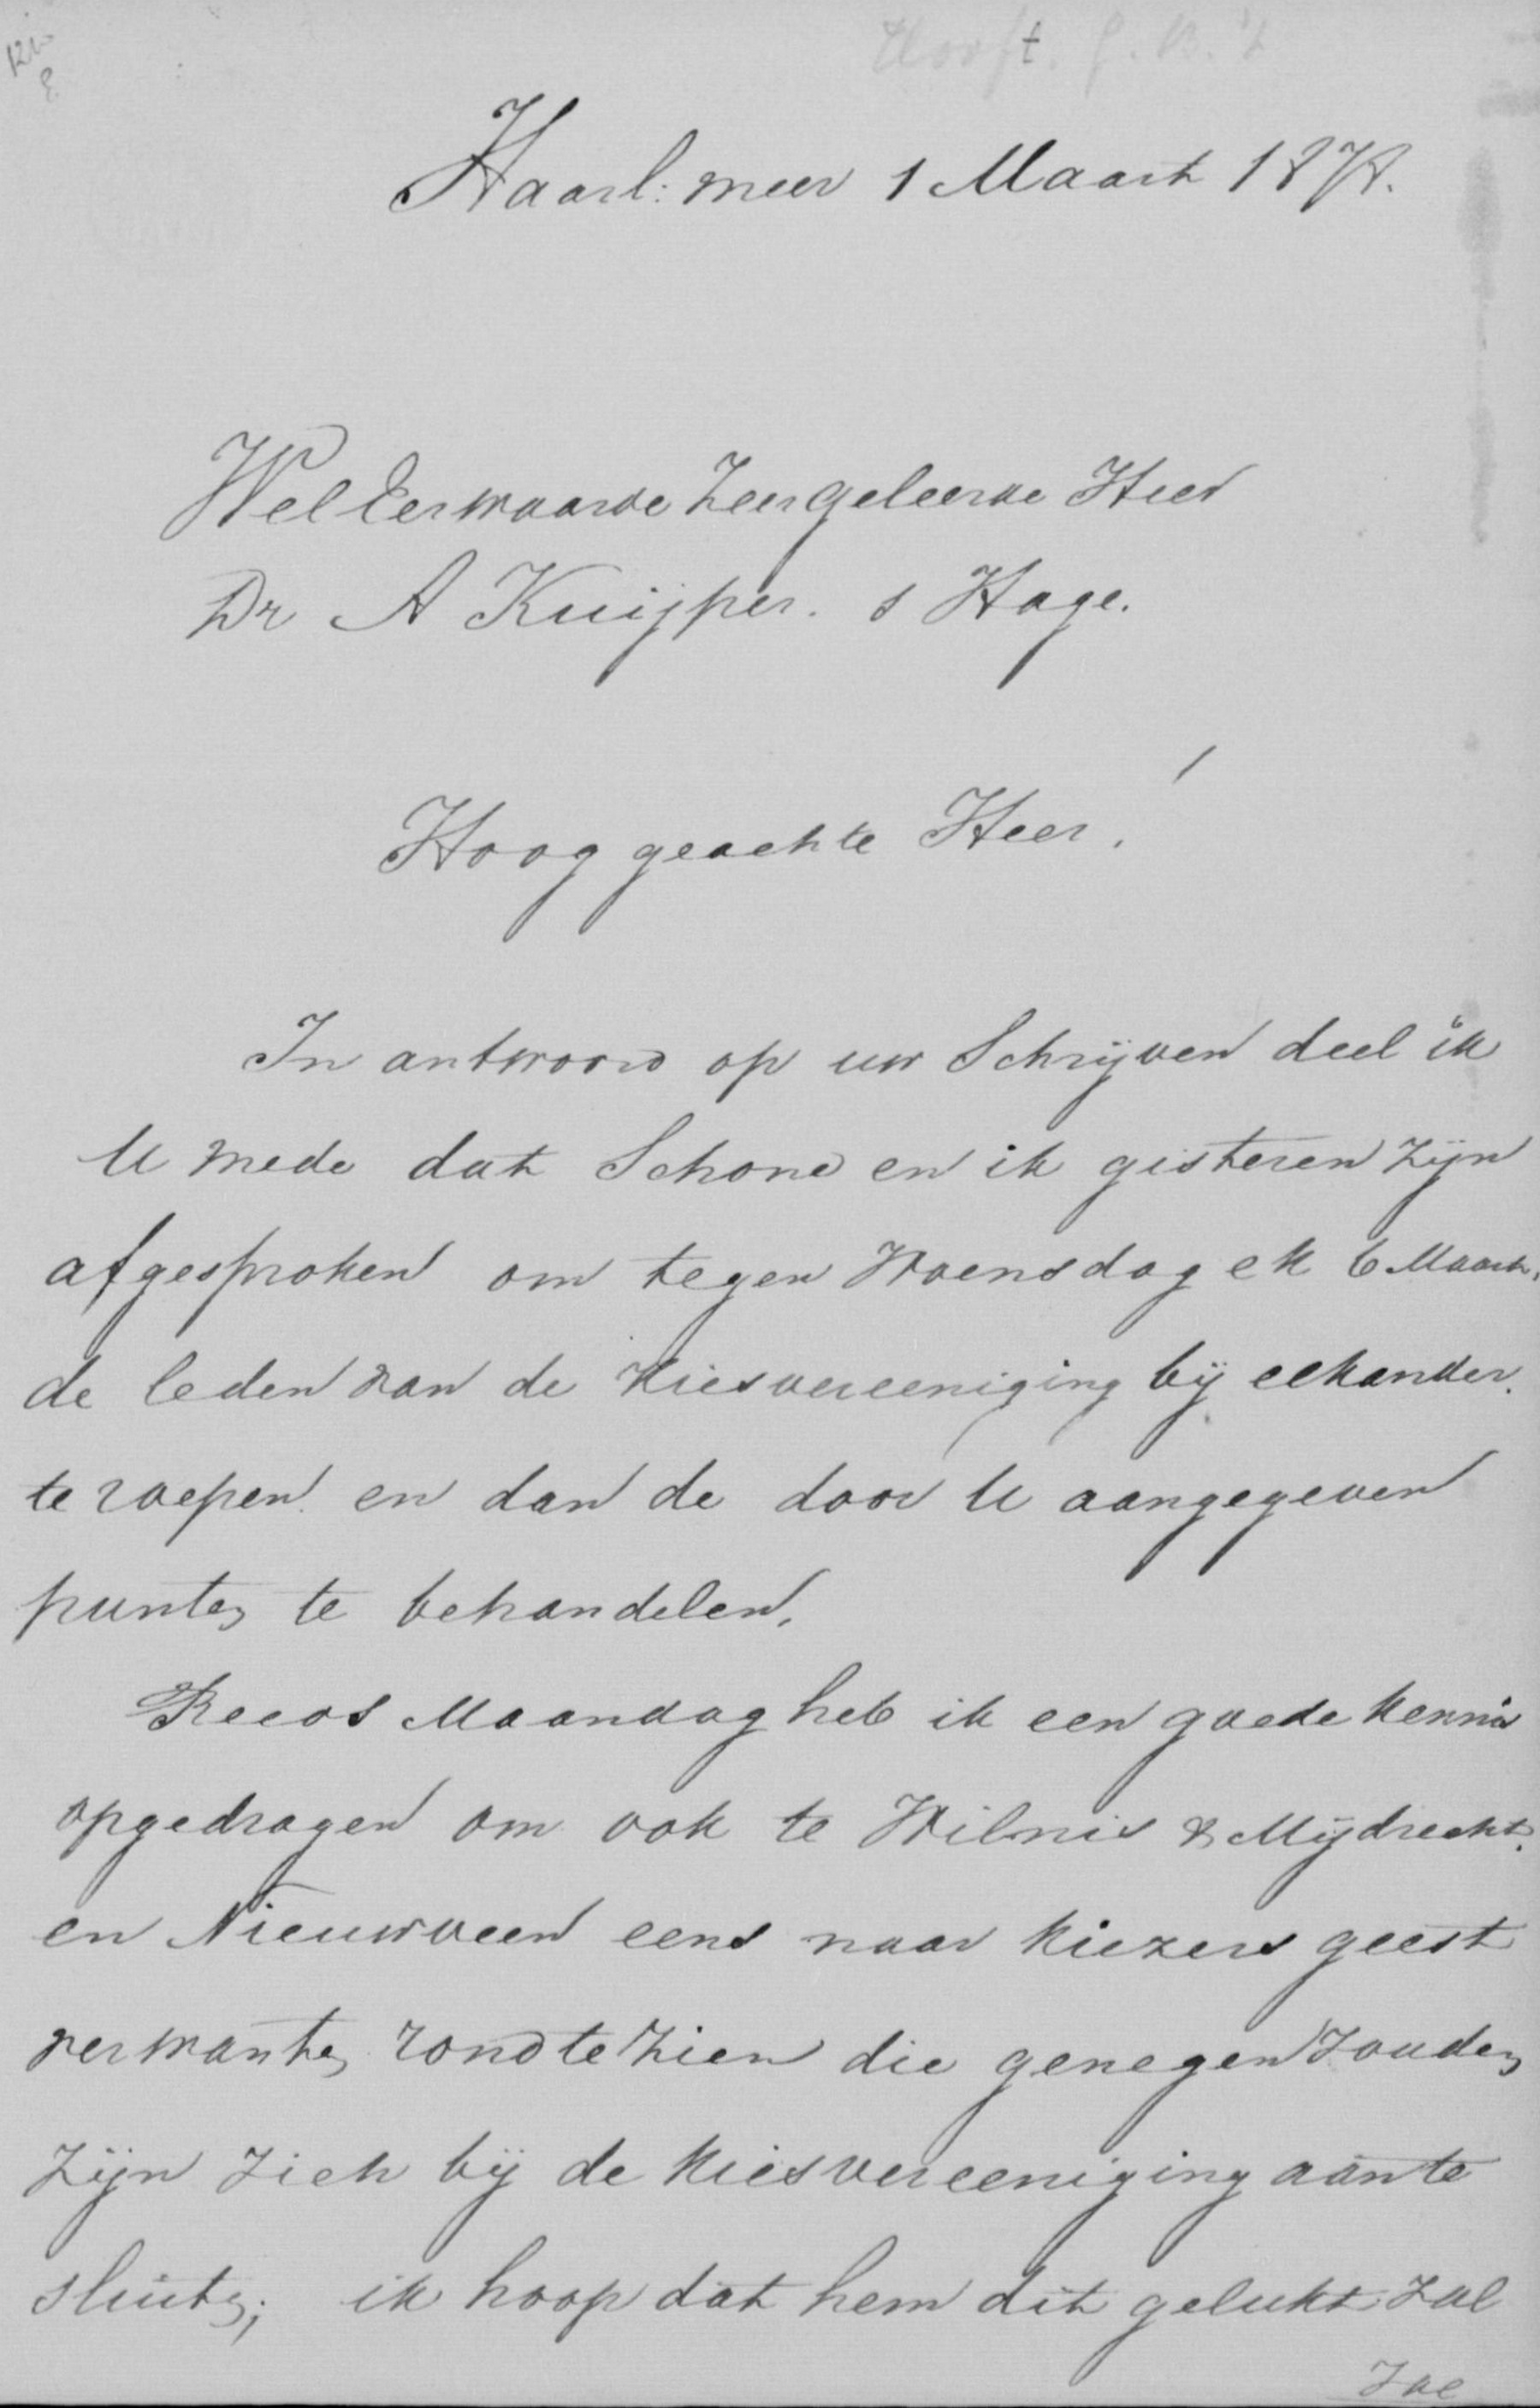 Hooft. J.B. 't
Haarl: meer 1 Maart 1878.
WelEerwaarde Zeer geleerde Heer
Dr A Kuijper. s Hage.
Hoog geachte Heer!
In antwoord op uw Schrijven deel ik
U mede dat Schone en ik gisteren zijn
afgesproken om tegen Woensdag ek 6 Maart.
de leden van de Kiesvereeniging bij elkander.
te roepen en dan de door U aangegeven
punten te behandelen.
Reeds Maandag heb ik een goede kennis
opgedragen om ook te Wilnis & Mijdrecht.
en Nieuwveen eens naar kiezers geest
verwanten rond te zien die genegen zouden
zijn zich bij de kiesvereeniging aan te
sluiten; ik hoop dat hem dit gelukt zal
zal